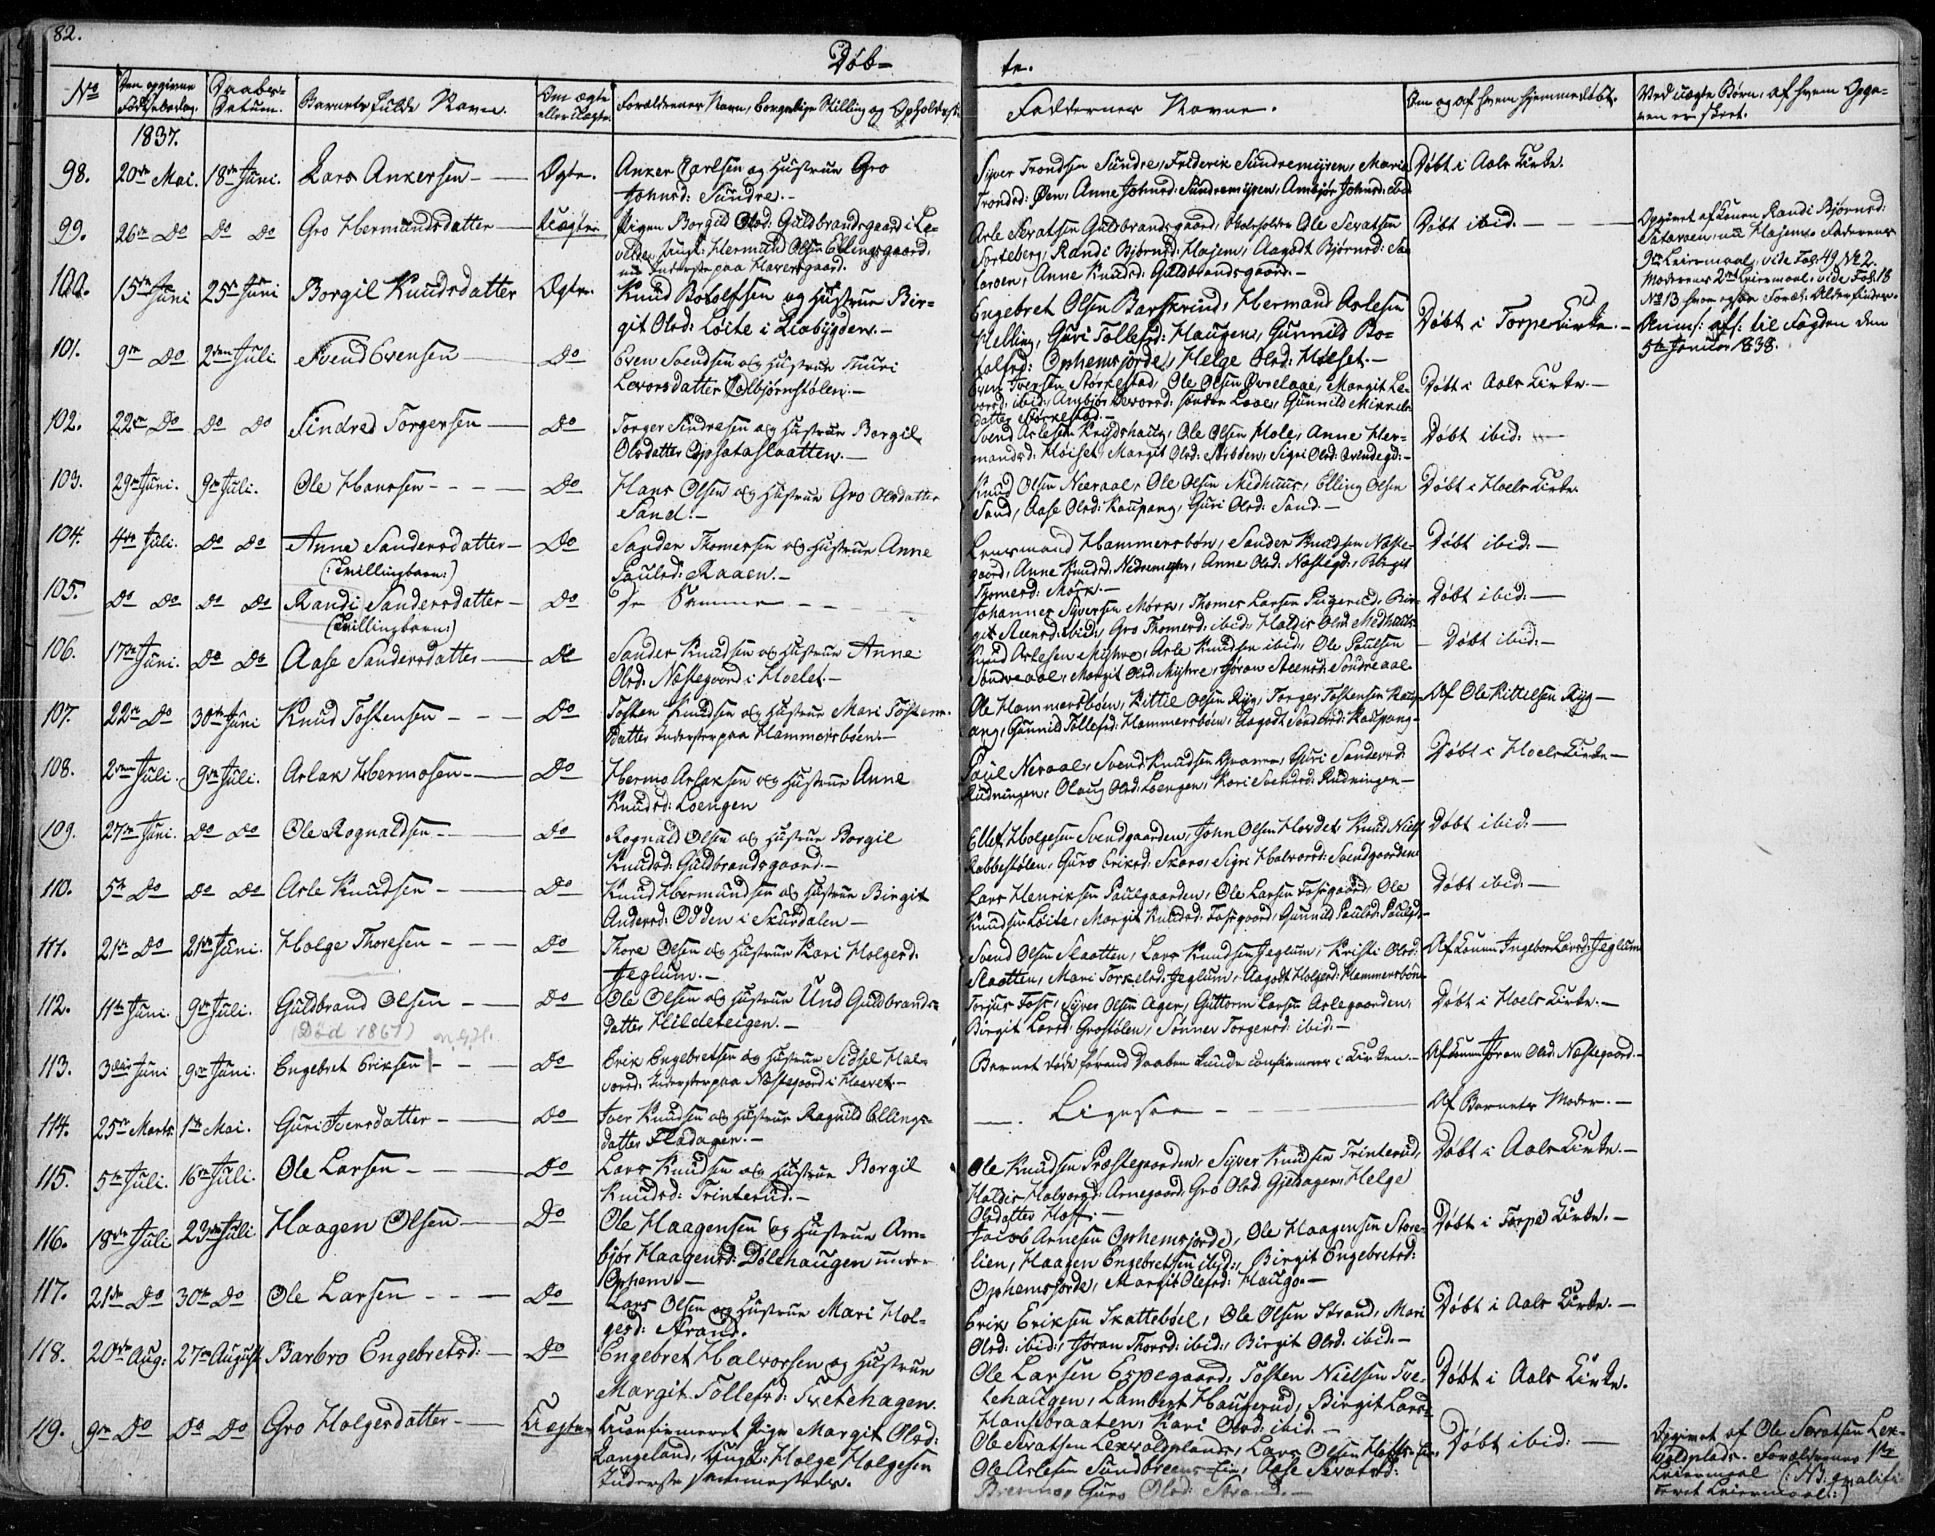 82.
Døb-
te.
No
Den opgivne Fødselsdag.
Daabs-Datum.
Barnets fulde Navn.
Om ægte eller uægte.
Forældrenes Navn, borgerlige Stilling og Opholdsst:
Faddernes Navne.
Om og af hvem hjemmedøbt.
Ved uægte Børn, af hvem Opga-
ven er skeet.
1837.
98. 20de Mai. 18de Juni. Lars Ankersen — Ægte. Anker Carlsen og Hustrue Gro
Johnsd: Sundre. —
Syver Trondsen Sundre, Friderik Sundremyren, Marie
Trondsd: Øen, Anne Johnsd: Sundremyren, Ambjør Johnsd: ibid
Døbt i Aals Kirke.
99. 26de Do Do Do Gro Hermundsdatter — Uægte. Pigen Borgild Olsd: Guldbrandsgaard i Le-
Hermund Olsen Ellingsgaard,
nu Inderste paa Haversgaard.
Asle Sevatsen Guldbrandsgaard, Ole Sevatsen
Sorteberg, Randi Bjørnsd: Hajem, Aagodt Bjørnsd: Sa-
taroen, Anne Knudsd: Guldbrandsgaard. —
Døbt ibid. —
Opgivet af Konen Randi Bjørnsd:
Sataroen, nu Hajem. Faderens
Leiermaal, vide Fol: 49 No 2.
Moderens 2det Leiermaal, vide Fol: 18
No 13 hvor ogsaa Foræl: Alder findes.
Anm: afs: til Fogden den
5te Januar 1838.
100. 15de Juni 25de Juni Borgil Knudsdatter Ægte. Knud Botolfsen og Hustrue Bir-
git Olsd: Løite i Liabygden. —
Engebret Olsen Barskrind, Hermand Aslesen
Helling, Guri Tollefsd: Haugen, Gunnild Bo-
tolfsd: Ophemsjorde, Helge Olsd: Holset. —
Døbt i Torpe Kirke. —
101. 9de Do 2den Juli Svend Evensen — Do Even Svendsen og Hustrue Thuri
Levorsdatter Colbjørnstølen. —
Even Iversen Størkestad, Ole Olsen Øvrelaae, Margit Le-
vorsd: ibid, Ambjør Levorsd: søndre Laae, Gunnild Mikkels-
datter Størkestad. —
Døbt i Aals Kirke —
102. 22de Do Do Do Sindred Torgersen — Do Torger Sindresen og Hustrue Borgil
Olsdatter Opsataslaatten. —
Svend Aslesen Ole Olsen Hole, Anne Her-
mandsd: Høiset, Margit Olsd: Sigri Olsd:
Døbt ibid: —
103. 29de Juni. 9de Juli. Ole Hansen — Do Hans Olsen og Hustrue Gro Olsdatter
Sand. —
Knud Olsen Noraal, Ole Olsen Medhuus, Elling Olsen
Sand, Aase Olsd: Kaupang, Guri Olsd: Sand. —
Døbt i Hoels Kirke
104. 4de Juli. Do Do Anne Sandersdatter — Do Sander Thomesen og Hustrue Anne
(: Tvillingbarn:)
Paulsd: Raaen. —
Lensmand Hammersbøn, Sander Knudsen Næste-
gaard, Anne Knudsd: Nedremyhr, Anne Olsd: Næstegd:, Birgit
Thomesd: Mørk. —
Døbt ibid: —
105. Do Do Do Do Randi Sandersdatter — Do De Samme —
(: Tvillingbarn:)
Johannes Syversen Mørk, Thomes Larsen Bir-
git Steensd: ibid:, Gro Thomesd: ibid: Haldis Olsd: Medhuus
Døbt ibid: —
106. 17de Juni. Do Do Aase Sandersdatter — Do Sander Knudsen og Hustrue Anne
Olsd: Næstegaard i Holet. —
Knud Aslesen Myhre, Asle Knudsen ibid:, Ole Paulsen
Sondreaal, Margit Olsd: Myhre, Jøran Steensd: Sondreaal
Døbt ibid: —
107. 22de Do 30te Juni Knud Tostensen — Do Tosten Knudsen og Hustrue Mari Tostens-
datter Inderster paa Hammersbøen. —
Ole Hammersbøen, Kittil Olsen Ryg, Torger Tostensen Kaup-
ang, Gunnild Tollefsd: Hammersbøen, Aagodt Kaupang —
Af Ole Kittelsen Ryg —
108. 2den Juli. 9de Juli. Aslak Hermosen — Do Hermo Aslaksen og Hustrue Anne
Knudsd: Loengen
Paul Neraal, Svend Knudsen Guri Sandersd:
Rudningen, Olaug Olsd: Loengen, Kari Svendsd: Rudningen —
Døbt i Hoels Kirke —
109. 27de Juni. Do Do Ole Rognaldsen — Do Rognald Olsen og Hustrue Borgil
Knudsd: Guldbrandsgaard. —
Ellef Holgesen Svendgaarden, John Olsen Hordet, Knud Niels:
Rabbestølen, Guro Eriksd: Skaro, Sigri Halvorsd: Svendgaarden
Døbt ibid: —
110. 5te Do Do Do Asle Knudsen — Do Knud Hermundsen og Hustrue Birgit
Andersd: Odden i Skurdalen —
Lars Henriksen Paulgaarden, Ole Larsen Fosgaard, Ole
Knudsen Løite, Margit Knudsd: Fosgaard, Gunnild Paulsd: Paulgd: —
Døbt ibid: —
111. 21de Do 21de Juni. Holge Thoresen — Do Thore Olsen og Hustrue Kari Holgesd:
Jeglum. —
Svend Olsen Slaatten, Lars Knudsen Jeglum, Kristi Olsd:
Slaatten, Mari Torkelsd: Jeglum, Aagodt Holgesd: Hammersbøen
Af Konen Ingebor Larsd: Jeglum
112. 11te Juni. 9de Juli. Guldbrand Olsen — Do Ole Olsen og Hustrue Und Guldbrands-
(Død 1861)
datter Hildeteigen. —
Torjus Foss, Syver Olsen Ager, Guttorm Larsen Aslegaarden,
Birgit Larsd: Grostølen, Sønnev Torgersd: ibid: —
Døbt i Hoels Kirke. —
113. 3die Juni 9de Juni. Engebret Eriksen — Do Erik Engebretsen og Hustrue Sidsel Hal-
vorsd: Inderster paa Næstegaard i Haavet. —
Barnet døde forend Daaben kunde confirmeres i Kirken. —
Af Konen Jøran Olsd: Næstegaard. —
114. 25de Marts 1ste Mai. Guri Iversdatter — Do Iver Knudsen og Hustrue Ragnild Ellings-
datter Fladagen. —
Ligesaa —
Af Barnets Moder. —
115. 5te Juli. 16de Juli. Ole Larsen — Do Lars Knudsen og Hustrue Borgil
Knudsd: Trinterud. —
Ole Knudsen Præstegaarden, Syver Knudsen Trinterud,
Haldis Halvorsd: Arnegaard, Gro Olsd: Gjeldagen, Helge
Olsdatter Hoff. —
Døbt i Aals Kirke. —
116. 18de Juli 23de Juli Haagen Olsen — Do Ole Haagensen og Hustrue Am-
bjør Haagensd: Dølehaugen under
Ophem. —
Jacob Arnesen Ophemsjorde, Ole Haagensen Store-
lien, Haagen Engebretsen ibid:, Birgit Engebretsd:
Ophemsjorde, Margit Olefsd: Hauge. —
Døbt i Torpe Kirke. —
117. 21de Do 30te Do Ole Larsen — Do Lars Olsen og Hustrue Mari Hol-
gesd: Strand.
Erik Eriksen Skattebøel, Ole Olsen Strand, Mari
Olsd: ibid:, Jøran Thoresd: ibid:, Birgit Olsd: ibid: —
Døbt i Aals Kirke. —
118. 20de Aug: 27de August Barbro Engebretsd: — Do Engebret Halvorsen og Hustrue
Margit Tollefsd: Tvetehagen.
Ole Larsen Espegaard, Tosten Nielsen Tve-
tehaugen, Lambert Haugerud, Birgit Larsd:
Hansebraaten, Kari Olsd: ibid: —
Døbt i Aals Kirke.
119. 9de Do Do Do Gro Holgersdatter — Uægte Uconfirmeret Pige Margit Olsd:
Langeland, Ungk: Holge Holgesen
Inderste sammesteds.
Ole Sevatsen Lexvoldplads, Lars Olsen Hoffs-Eie,
Ole Aslesen Sundbreens-Eie, Aase Sevatsd:
Brenno, Guro Olsd: Strand. —
Døbt ibid: —
Opgivet af Ole Sevatsen Lex-
voldplads. Forældrenes 1ste
Leiermaal (: NB: qvalifi-
ceret Leiermaal:)